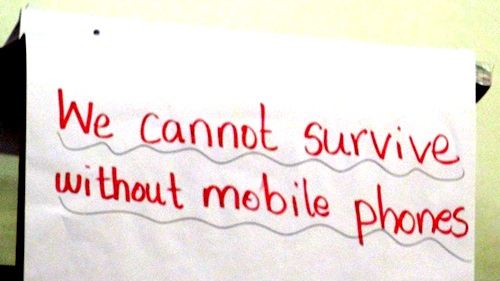 We cannot survive
without mobile phones